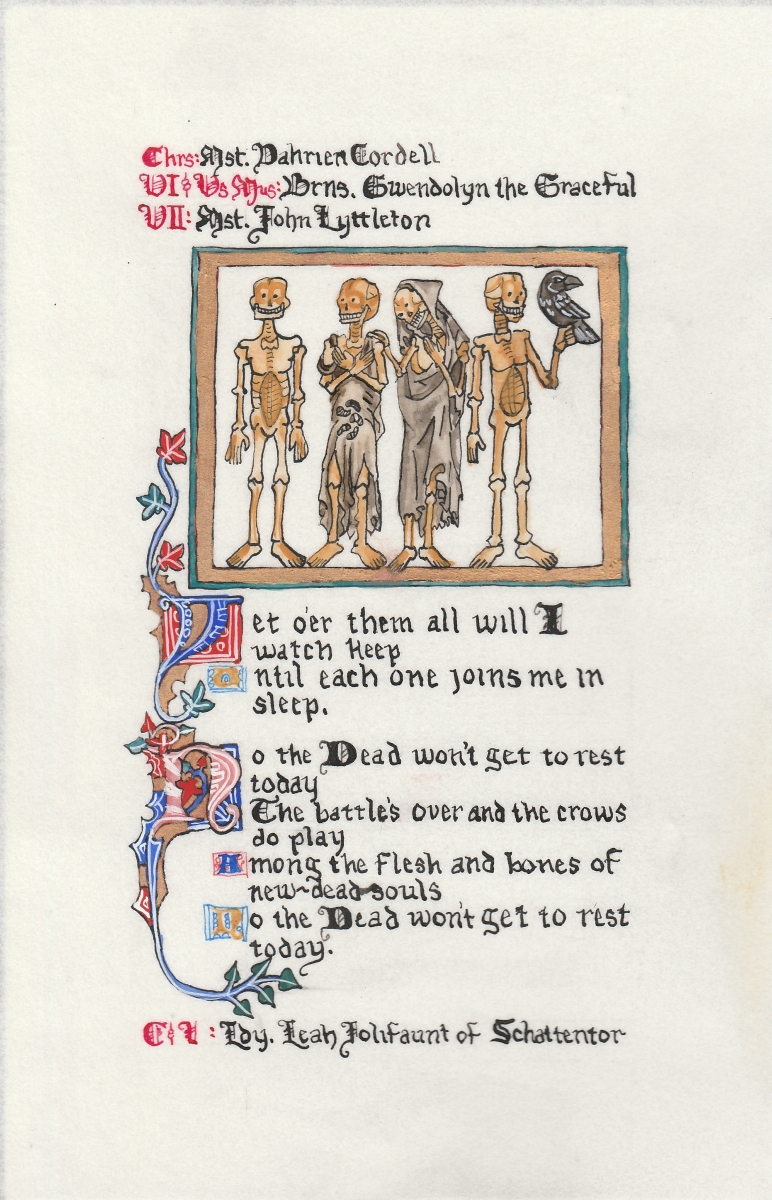 Chrs: Mst. Dahrien Cordell
VI & Vs Mus: Brns. Gwendolyn the Graceful
VII: Mst. John Lyttleton
Yet o'er them all will I
watch keep
Until each one joins me in
sleep.
No the Dead won't get to rest
today
The battle's over and the crows
do play
Among the flesh and bones of
new~dead souls
No the Dead won't get to rest
today.
C & I: Ldy. Leah Jolifaunt of Schattentor